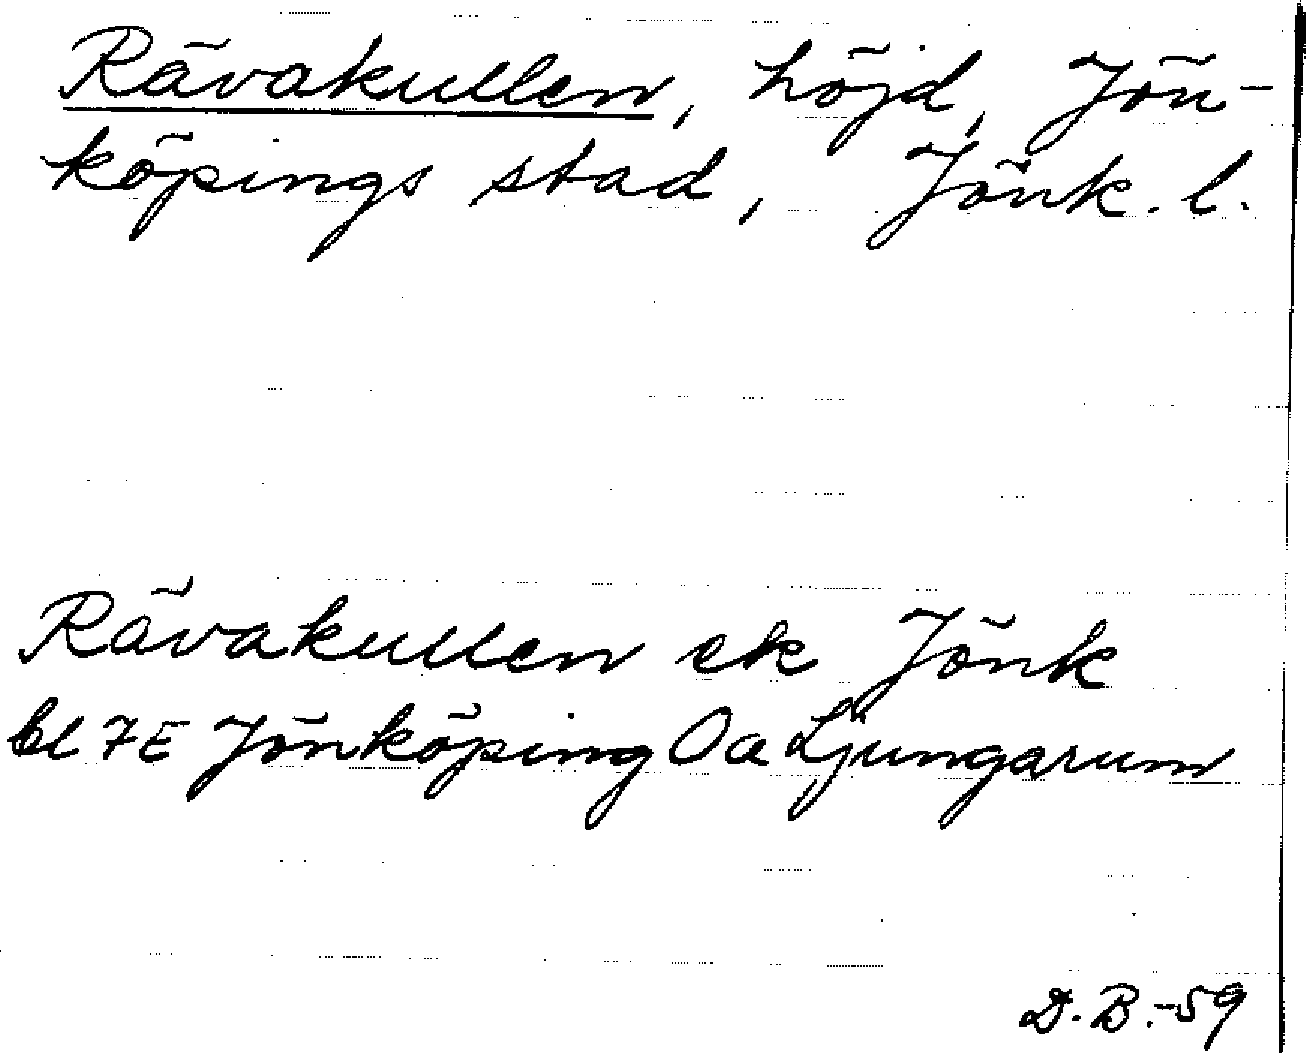 Rävakullen, höjd, Jön-
köpings stad, Jönk. l.
Rävakullen ek Jönk
bl 7E Jönköping Oa Ljungarum
D. B. -59